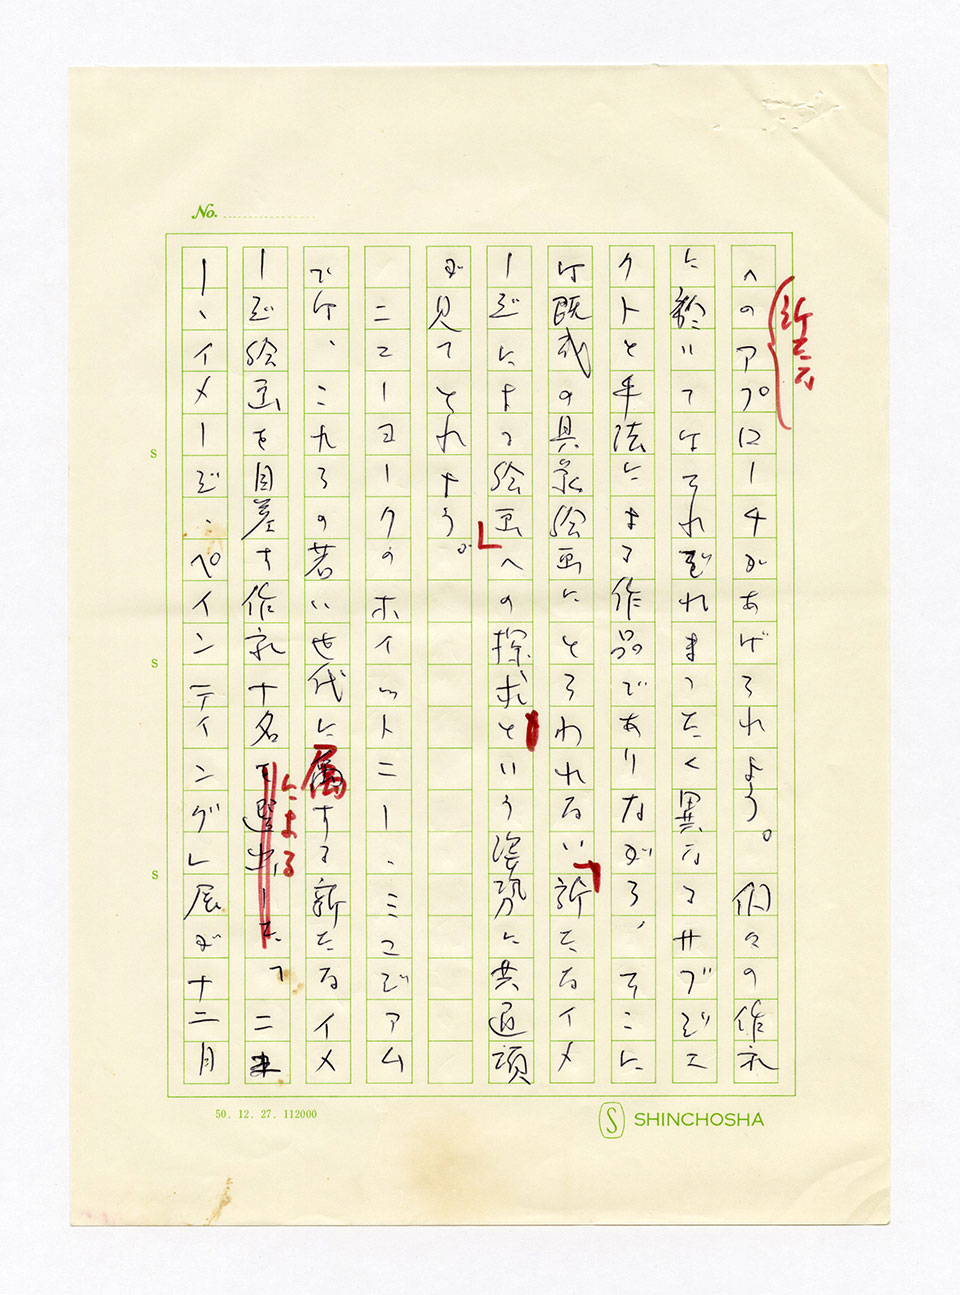 No.
へのアプローチがあげられよう。個々の作家
に於いてはそれぞれまったく異なるサブジェ
クトと手法による作品でありながら、そこに
は既成の具象絵画にとらわれない「新たなイメ
ージによる絵画」への探求という姿勢に共通項
が見てとれよう。
ニューヨークのホイットニー、ミュジアム
では、これらの若い世代に属する新たなイメ
ージ絵画を目差す作家十名選出した「ニュ
による
ー、イメージ、ペインティング」展が十二月
S
S
S
50. 12. 27. 112000
S SHINCHOSHA